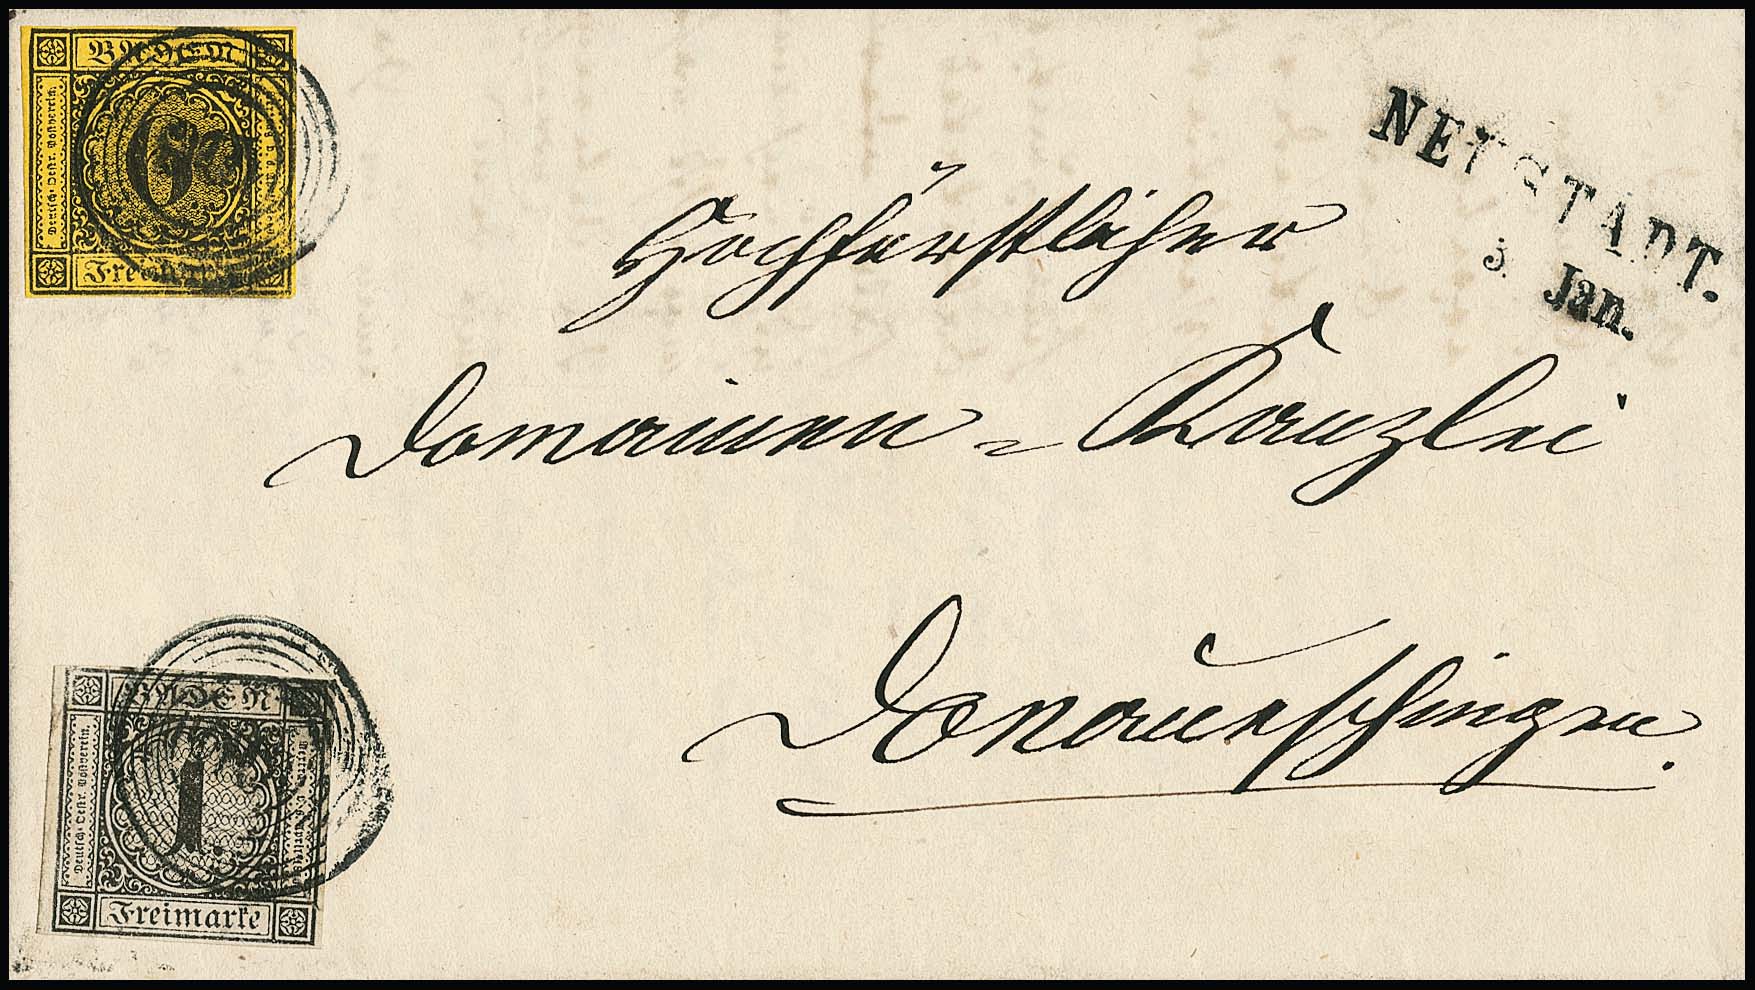 BADEN
Deutsch. Oestr. Postverein.
6
Freimarke
NEUSTADT.
3. Jan.
Hochfürstlicher
Domainen-Kanzlei
Donaueschingen.
BADEN
Deutsch. Oestr. Postverein.
1.
Freimarke